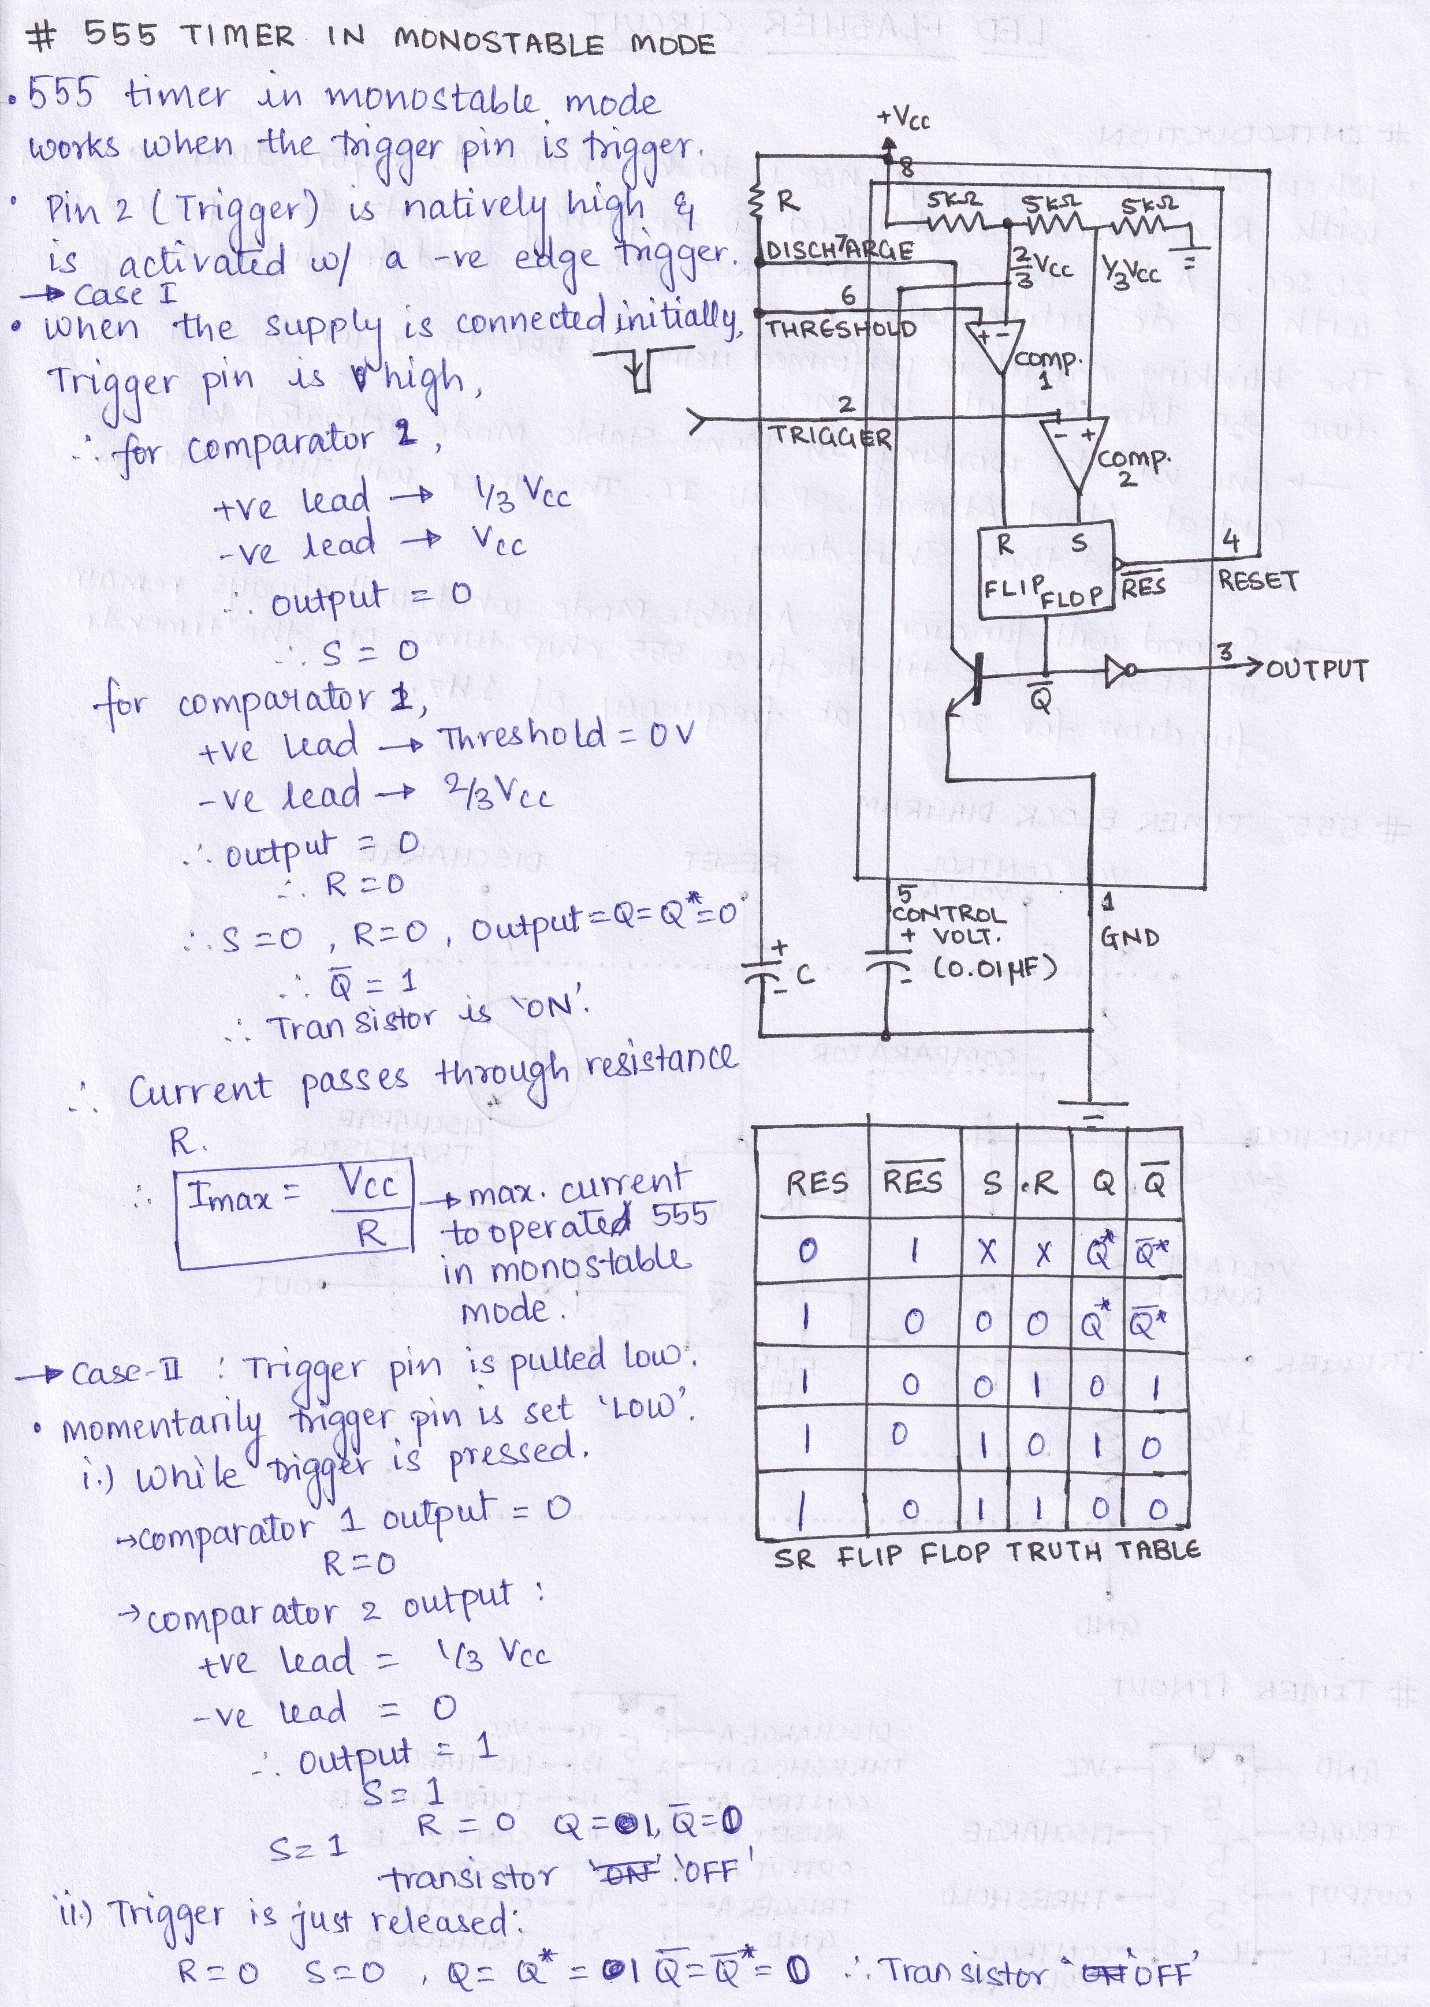 # 555 TIMER IN MONOSTABLE MODE
• 555 timer in monostable mode
works when the trigger pin is trigger.
• Pin 2 (Trigger) is natively high &
is activated w/ a -ve edge trigger.
→ Case I
• When the supply is connected initially,
Trigger pin is high,
∴ for comparator 2,
+ve lead → 1/3 Vcc
-ve lead → Vcc
∴ output = 0
∴ S = 0
for comparator 1,
+ve lead → Threshold = 0V
-ve lead → 2/3 Vcc
∴ output = 0
∴ R = 0
∴ S = 0, R = 0, output = Q = Q* = 0
∴ Q̅ = 1
∴ Transistor is 'ON'.
∴ Current passes through resistance
R.
∴ Imax = Vcc / R → max. current
to operated 555
in monostable
mode.
→ Case-II : Trigger pin is pulled low.
• momentarily trigger pin is set 'LOW'.
i.) While trigger is pressed.
→ comparator 1 output = 0
R = 0
→ comparator 2 output :
+ve lead = 1/3 Vcc
-ve lead = 0
∴ output = 1
S = 1
S = 1 R = 0 Q = 1, Q̅ = 0
transistor 'ON' 'OFF'
ii.) Trigger is just released:
R = 0 S = 0 , Q = Q* = 1 Q̅ = Q̅* = 0 ∴ Transistor 'OFF'
+Vcc
8
R
5kΩ 5kΩ 5kΩ
DISCHARGE
7
2/3 Vcc 1/3 Vcc
6
THRESHOLD
+ -
comp.
1
2
TRIGGER
- +
comp.
2
R S
FLIP FLOP
RES̅
4
RESET
3
OUTPUT
Q̅
5
CONTROL
VOLT.
(0.01µF)
+
-
1
GND
+
C
-
RES RES̅ S R Q Q̅
0 1 X X Q* Q̅*
1 0 0 0 Q* Q̅*
1 0 0 1 0 1
1 0 1 0 1 0
1 0 1 1 0 0
SR FLIP FLOP TRUTH TABLE